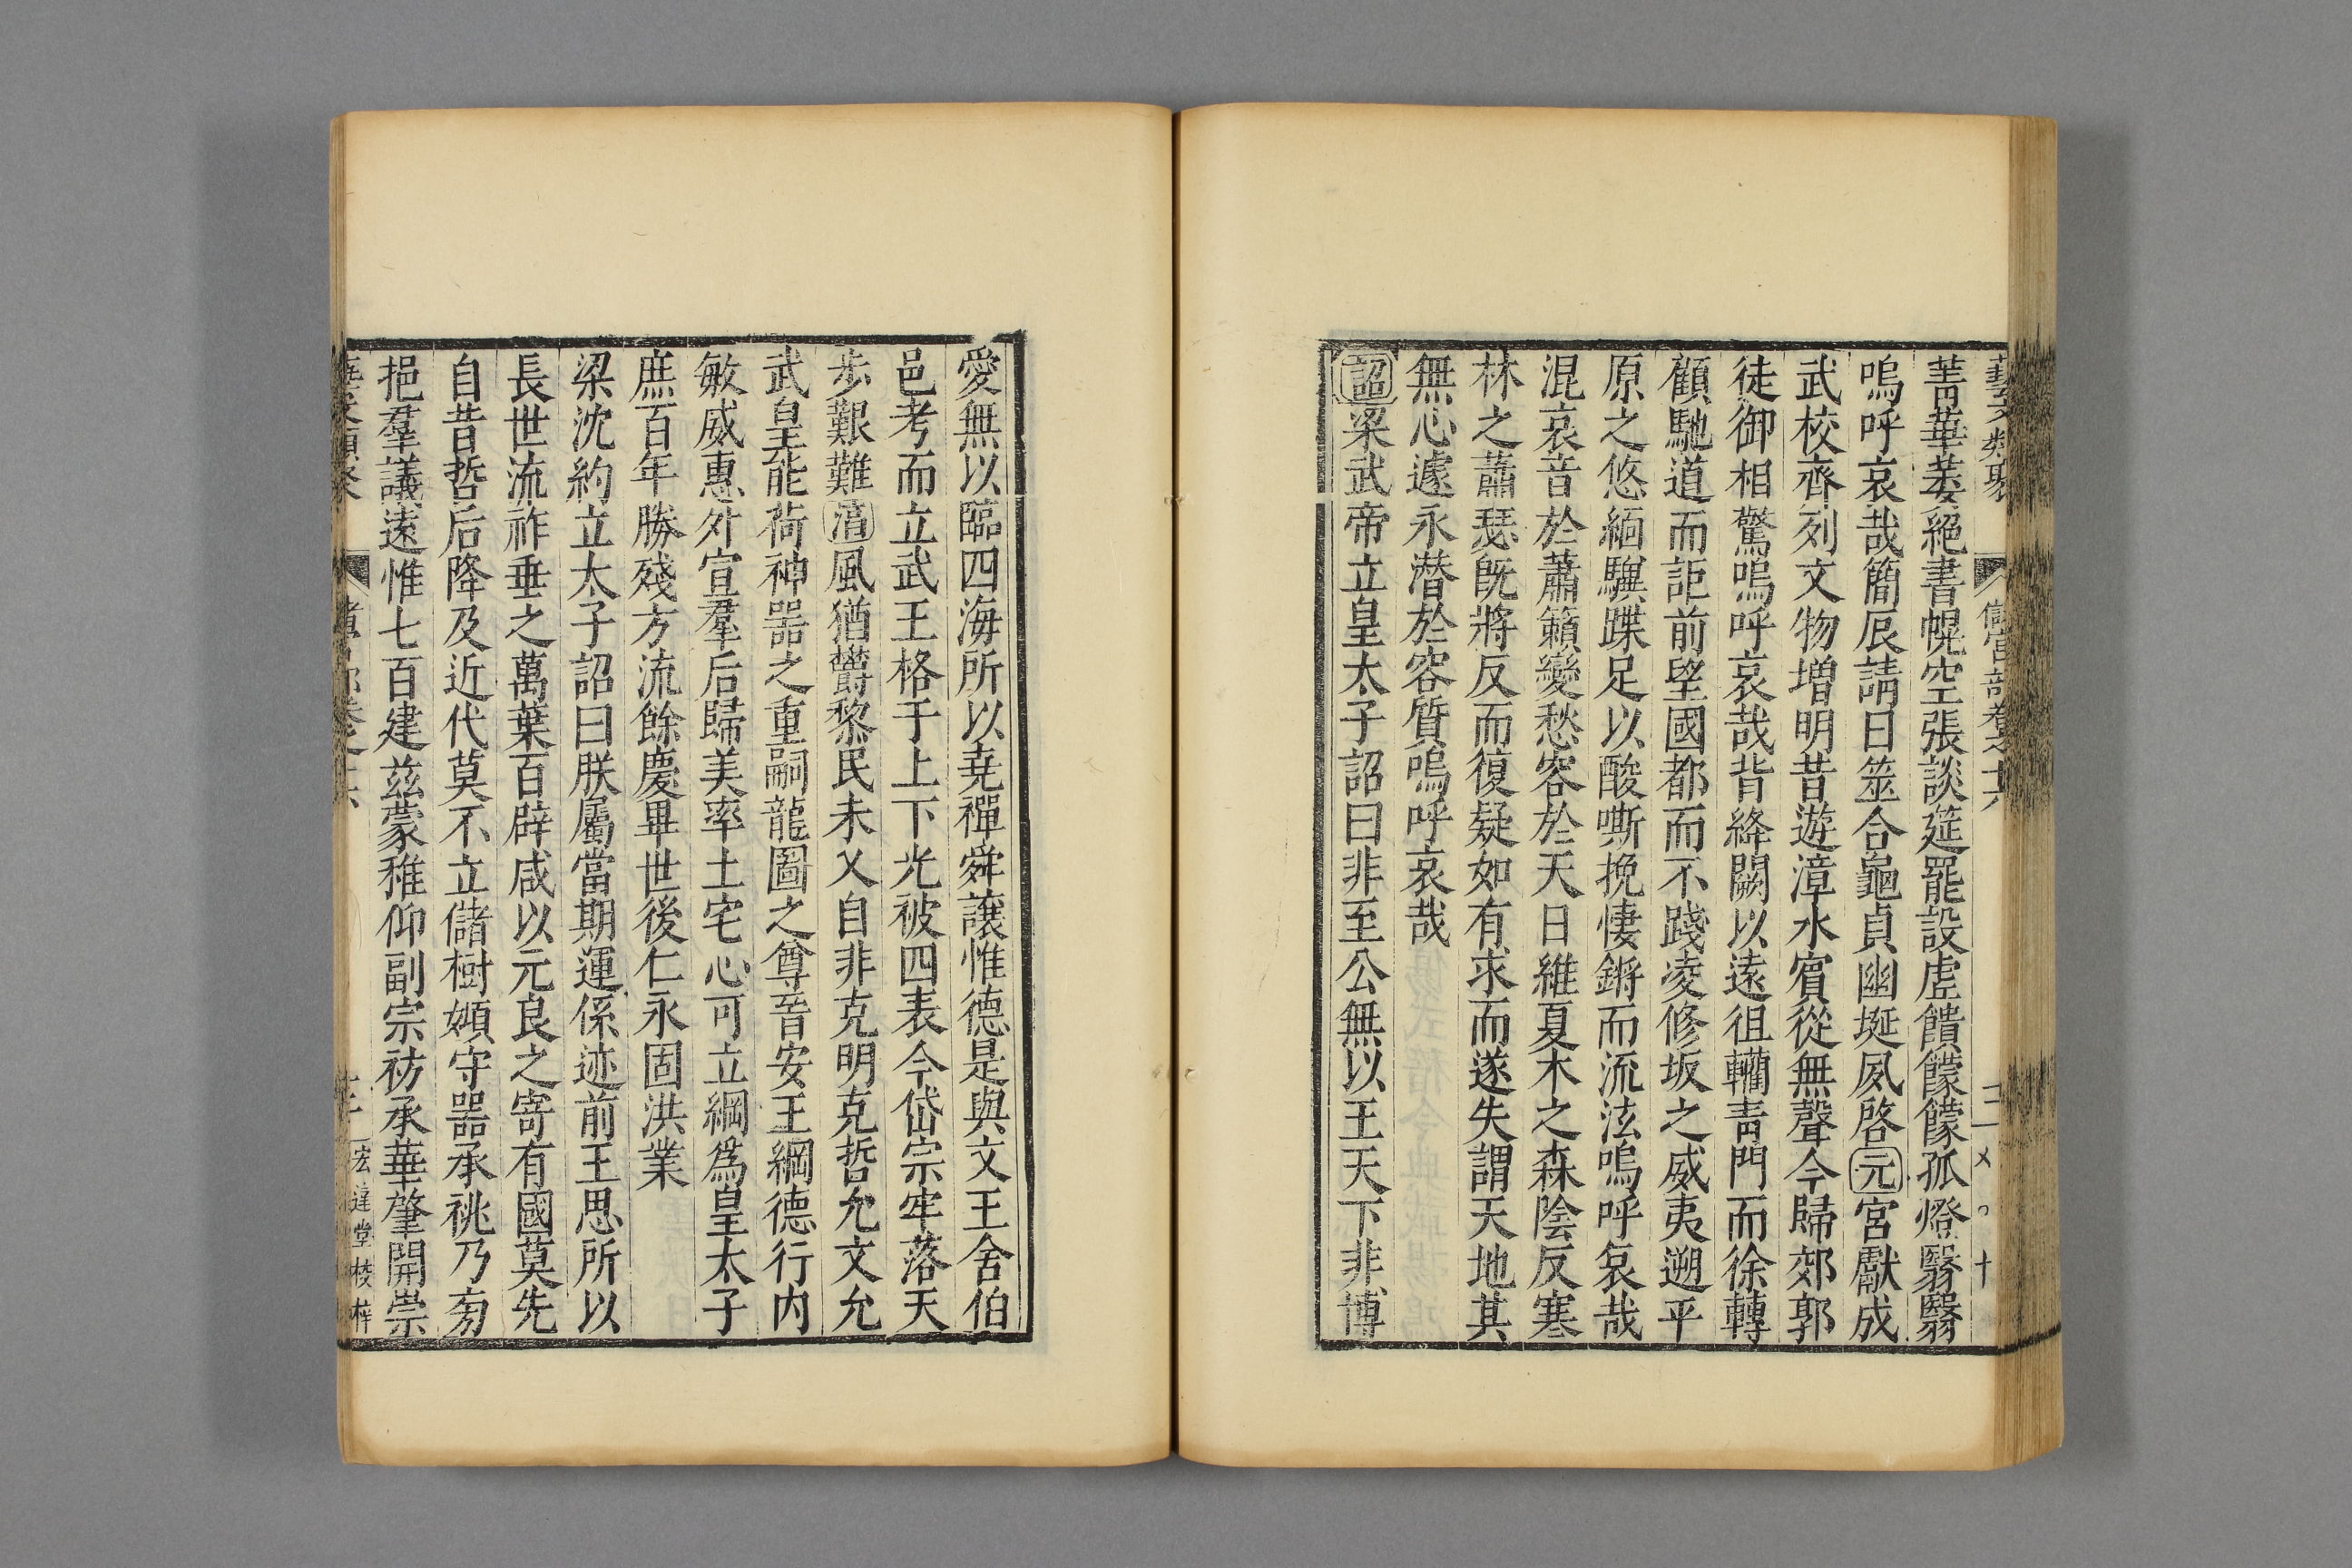 菁華委絕書幌空張談筵罷設虛饋饛饛孤燈翳翳
嗚呼哀哉簡辰請日筮合龜貞幽埏夙啓元宮獻成
武校齊列文物增明昔遊漳水賓從無聲今歸郊郭
徒御相驚嗚呼哀哉背絳闕以遠徂轥青門而徐轉
顧馳道而詎前望國都而不踐凌修坂之威夷遡平
原之悠緬驥蹀足以酸嘶挽悽鏘而流泫嗚呼哀哉
混哀音於蕭籟變愁容於天日維夏木之森陰反寒
林之蕭瑟旣將反而復疑如有求而遂失謂天地其
無心遽永潛於容質嗚呼哀哉
詔梁武帝立皇太子詔曰非至公無以王天下非博
愛無以臨四海所以堯禪舜讓惟德是與文王舍伯
邑考而立武王格于上下光被四表今岱宗牢落天
步艱難淸風猶鬱黎民未乂自非克明克哲允文允
武皇能荷神器之重嗣龍圖之尊晉安王綱德行内
敏威惠外宣羣后歸美率土宅心可立綱爲皇太子
庶百年勝殘方流餘慶畢世後仁永固洪業
梁沈約立太子詔曰朕屬當期運係迹前王思所以
長世流祚垂之萬葉百辟咸以元良之寄有國莫先
自昔哲后降及近代莫不立儲樹嫡守器承祧乃夯
挹羣議遠惟七百建茲蒙稚仰副宗祊承華肇開崇
宏達堂梭梓